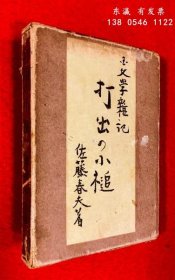 东瀛 有发票
138 0546 1122
文學雜記
打出の小槌
佐藤春夫著